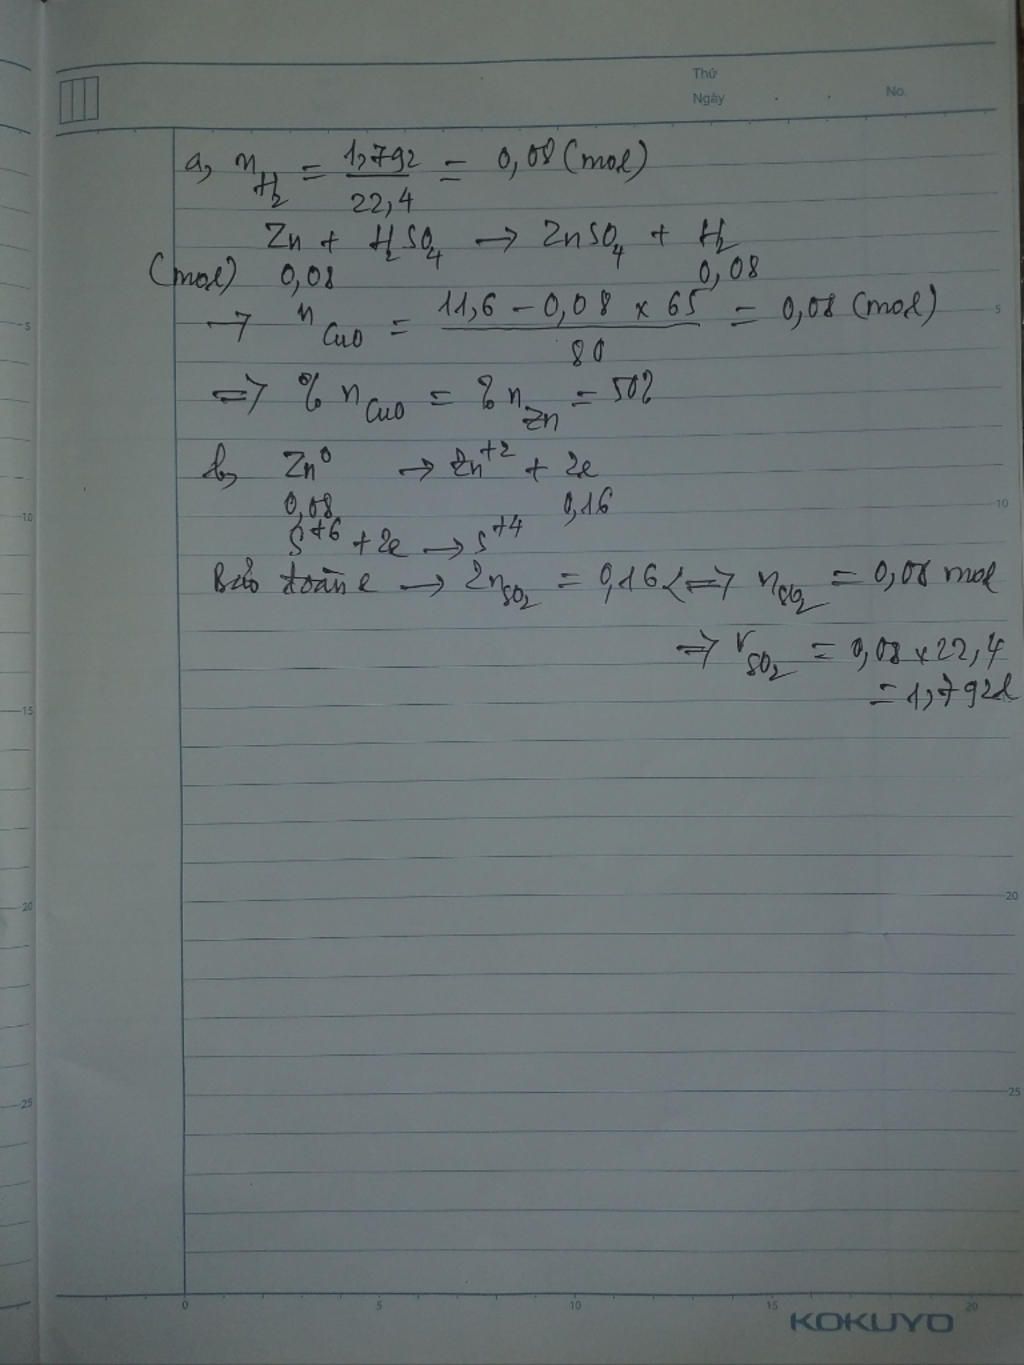 Thứ
Ngày . . No.
a, n H₂ = 1,792 / 22,4 = 0,08 (mol)
Zn + H₂SO₄ → ZnSO₄ + H₂
(mol) 0,08 0,08
→ n CuO = 11,6 - 0,08 x 65 / 80 = 0,08 (mol)
=> % n CuO = % n Zn = 50%
b, Zn⁰ → Zn⁺² + 2e
0,08 0,16
S⁺⁶ + 2e → S⁺⁴
Bảo toàn e → 2n SO₂ = 0,16 <=> n SO₂ = 0,08 mol
=> V SO₂ = 0,08 x 22,4
= 1,792l
5
10
15
20
25
5
10
20
25
0 5 10 15 20
KOKUYO